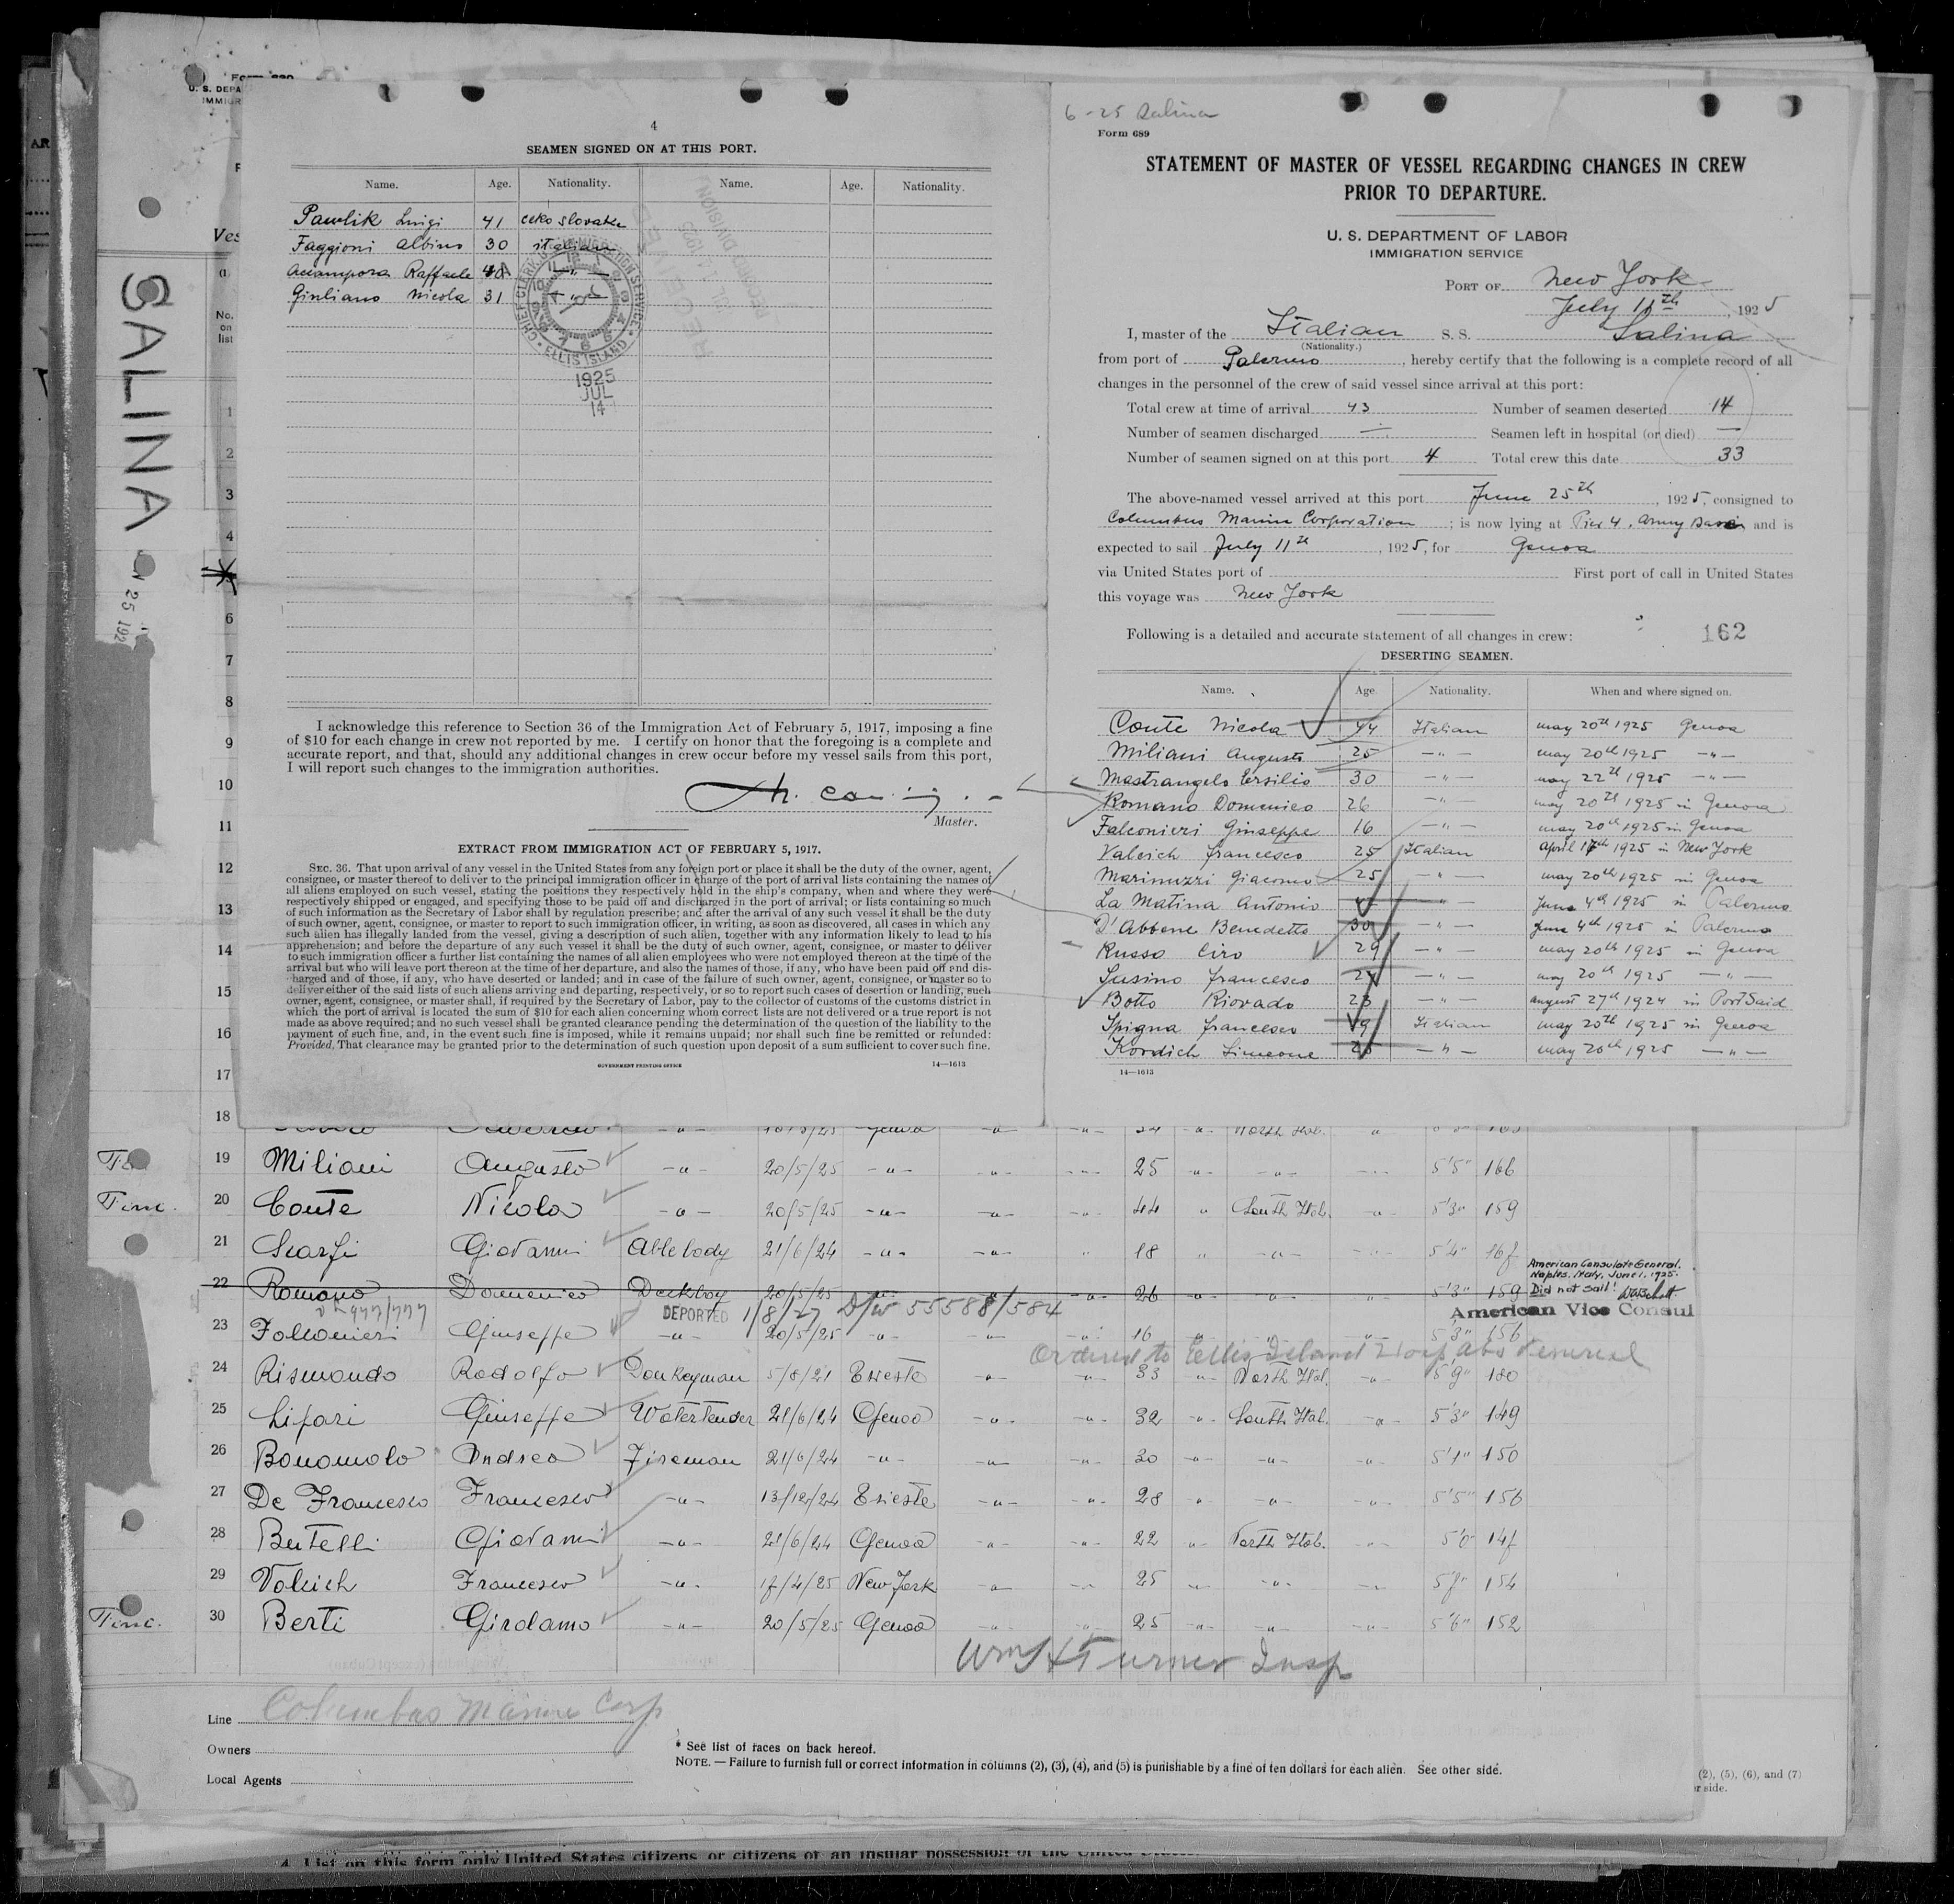 SALINA
4
SEAMEN SIGNED ON AT THIS PORT.
Name. Age. Nationality. Name. Age. Nationality.
Pawlik Luigi 41 ceko slovakia
Faggioni Albino 30 italian
Raffaele
Giuliano Nicola 31
CHIEF CLERK U.S. IMMIGRATION SERVICE
ELLIS ISLAND
1925
JUL
14
I acknowledge this reference to Section 36 of the Immigration Act of February 5, 1917, imposing a fine
of $10 for each change in crew not reported by me. I certify on honor that the foregoing is a complete and
accurate report, and that, should any additional changes in crew occur before my vessel sails from this port,
I will report such changes to the immigration authorities.
Master.
EXTRACT FROM IMMIGRATION ACT OF FEBRUARY 5, 1917.
SEC. 36. That upon arrival of any vessel in the United States from any foreign port or place it shall be the duty of the owner, agent,
consignee, or master thereof to deliver to the principal immigration officer in charge of the port of arrival lists containing the names of
all aliens employed on such vessel, stating the positions they respectively hold in the ship's company, when and where they were
respectively shipped or engaged, and specifying those to be paid off and discharged in the port of arrival; or lists containing so much
of such information as the Secretary of Labor shall by regulation prescribe; and after the arrival of any such vessel it shall be the duty
of such owner, agent, consignee, or master to report to such immigration officer, in writing, as soon as discovered, all cases in which any
such alien has illegally landed from the vessel, giving a description of such alien, together with any information likely to lead to his
apprehension; and before the departure of any such vessel it shall be the duty of such owner, agent, consignee, or master to deliver
to such immigration officer a further list containing the names of all alien employees who were not employed thereon at the time of the
arrival but who will leave port thereon at the time of her departure, and also the names of those, if any, who have been paid off and dis-
charged and of those, if any, who have deserted or landed; and in case of the failure of such owner, agent, consignee, or master so to
deliver either of the said lists of such aliens arriving and departing, respectively, or so to report such cases of desertion or landing, such
owner, agent, consignee, or master shall, if required by the Secretary of Labor, pay to the collector of customs of the customs district in
which the port of arrival is located the sum of $10 for each alien concerning whom correct lists are not delivered or a true report is not
made as above required; and no such vessel shall be granted clearance pending the determination of the question of the liability to the
payment of such fine, and, in the event such fine is imposed, while it remains unpaid; nor shall such fine be remitted or refunded:
Provided, That clearance may be granted prior to the determination of such question upon deposit of a sum sufficient to cover such fine.
GOVERNMENT PRINTING OFFICE 14—1613
6-25 Salina
Form 689
STATEMENT OF MASTER OF VESSEL REGARDING CHANGES IN CREW
PRIOR TO DEPARTURE.
U. S. DEPARTMENT OF LABOR
IMMIGRATION SERVICE
PORT OF New York
July 11th, 1925
I, master of the Italian S. S. Salina
(Nationality.)
from port of Palermo, hereby certify that the following is a complete record of all
changes in the personnel of the crew of said vessel since arrival at this port:
Total crew at time of arrival 43 Number of seamen deserted 14
Number of seamen discharged — Seamen left in hospital (or died) —
Number of seamen signed on at this port 4 Total crew this date 33
The above-named vessel arrived at this port June 25th, 1925, consigned to
Columbus Marine Corporation; is now lying at Pier 4, Army Basin and is
expected to sail July 11th, 1925, for Genoa
via United States port of First port of call in United States
this voyage was New York
Following is a detailed and accurate statement of all changes in crew: 162
DESERTING SEAMEN.
Name. Age. Nationality. When and where signed on.
Conte Nicola 44 Italian may 20th 1925 Genoa
Miliani Augusto 25 -"- may 20th 1925 -"-
Mastrangelo Ersilio 30 -"- may 22th 1925 -"-
Romano Domenico 26 -"- may 20th 1925 in Genoa
Falconieri Giuseppe 16 -"- may 20th 1925 in Genoa
Valcich Francesco 25 Italian April 17th 1925 in New York
Marinuzzi Giacomo 25 -"- may 20th 1925 in Genoa
La Matina Antonio -"- June 4th 1925 in Palermo
D'Abbene Benedetto 30 -"- June 4th 1925 in Palermo
Russo Ciro 29 -"- may 20th 1925 in Genoa
Susino Francesco -"- may 20th 1925 -"-
Botto Riovado 23 -"- august 27th 1924 in Port Said
Spigna Francesco 19 Italian may 20th 1925 in Genoa
Kordich Simeone -"- may 20th 1925 -"-
14—1613
19 Miliani Augusto -"- 20/5/25 -"- -"- -"- 25 -"- -"- 5'5" 166
20 Conte Nicola -"- 20/5/25 -"- -"- -"- 44 " South Ital. -"- 5'3" 159
21 Scarfi Giovanni Ablebody 21/6/24 -"- -"- " 18 " -"- 5'4" 167
American Consulate General.
Naples. Italy. June 1. 1925.
22 Romano Domenico Deckboy 20/5/25 -"- -"- 26 5'3" 159 Did not sail!
American Vice Consul
DEPORTED 1/8/27 55588/584
23 Falconieri Giuseppe -"- 20/5/25 -"- -"- 16 5'3" 156
Ordered to Ellis Island Hosp
24 Rismondo Rodolfo Donkeyman 5/8/21 Trieste -"- -"- 33 -"- North Ital. -"- 5'9" 180
25 Lipari Giuseppe Watertender 21/6/24 Genoa -"- -"- 32 -"- South Ital. -"- 5'3" 149
26 Bonomolo Andrea Fireman 21/6/24 -"- -"- -"- 30 -"- -"- -"- 5'1" 150
27 De Francesco Francesco -"- 13/12/24 Trieste -"- -"- 28 -"- -"- -"- 5'5" 156
28 Butelli Giovanni -"- 21/6/24 Genoa -"- -"- 22 -"- North Ital. -"- 5'0" 147
29 Valcich Francesco -"- 17/4/25 New York -"- -"- 25 -"- -"- -"- 5'7" 154
30 Berti Girolamo -"- 20/5/25 Genoa -"- -"- 25 -"- -"- -"- 5'6" 152
Wm H Turner Insp
Line Columbus Marine Corp
Owners
Local Agents
* See list of races on back hereof.
NOTE. — Failure to furnish full or correct information in columns (2), (3), (4), and (5) is punishable by a fine of ten dollars for each alien. See other side.
(2), (5), (6), and (7)
r side.
4. List on this form only United States citizens or citizens of an insular possession of the United States